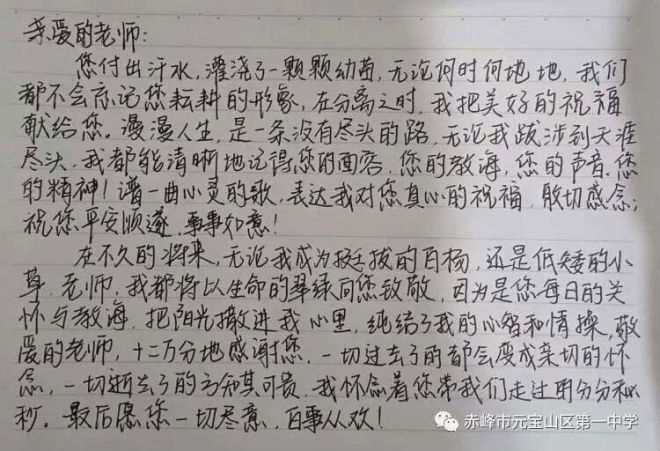 亲爱的老师：
您付出汗水，灌浇了一颗颗幼苗，无论何时何地地，我们
都不会忘记您耘耕的形象，在分离之时，我把美好的祝福
献给您。漫漫人生，是一条没有尽头的路，无论我跋涉到天涯
尽头，我都能清晰地记得您的面容，您的教诲，您的声音，您
的精神！谱一曲心灵的歌，表达我对您真心的祝福，殷切感念；
祝您平安顺遂，事事如意！
在不久的将来，无论我成为挺拔的白杨，还是低矮的小
草，老师，我都将以生命的翠绿向您致敬，因为是您每日的关
怀与教诲，把阳光撒进我心里，纯结了我的心智和情操，敬
爱的老师，十二万分地感谢您，一切过去了的都会变成亲切的怀
念，一切逝去了的方知其可贵，我怀念着您带我们走过的分分秒
秒。最后愿您一切尽意，百事从欢！
赤峰市元宝山区第一中学